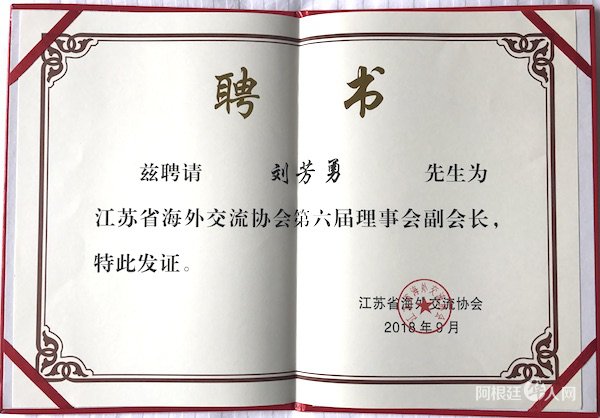 聘 书
兹聘请 刘芳勇 先生为
江苏省海外交流协会第六届理事会副会长，
特此发证。
江苏省海外交流协会
2018年9月
阿根廷华人网